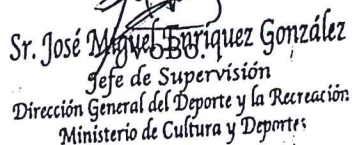 Sr. José Miguel Enríquez González
Vo.Bo.
Jefe de Supervisión
Dirección General del Deporte y la Recreación
Ministerio de Cultura y Deportes